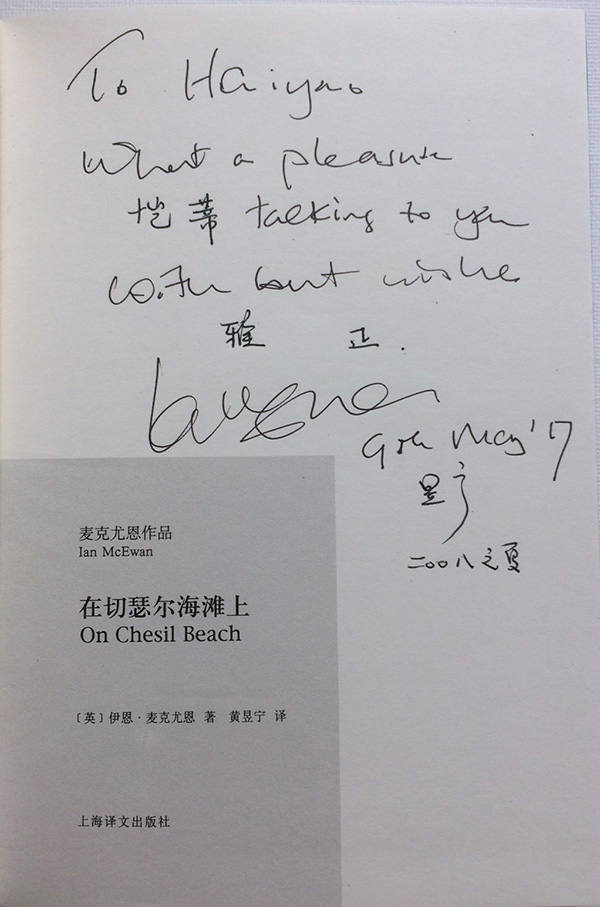 To Haiyao
What a pleasure
恺蒂 talking to you
with best wishes
雅 正.
9th May '17
昱宁
二〇〇八之夏
麦克尤恩作品
Ian McEwan
在切瑟尔海滩上
On Chesil Beach
〔英〕伊恩·麦克尤恩 著 黄昱宁 译
上海译文出版社